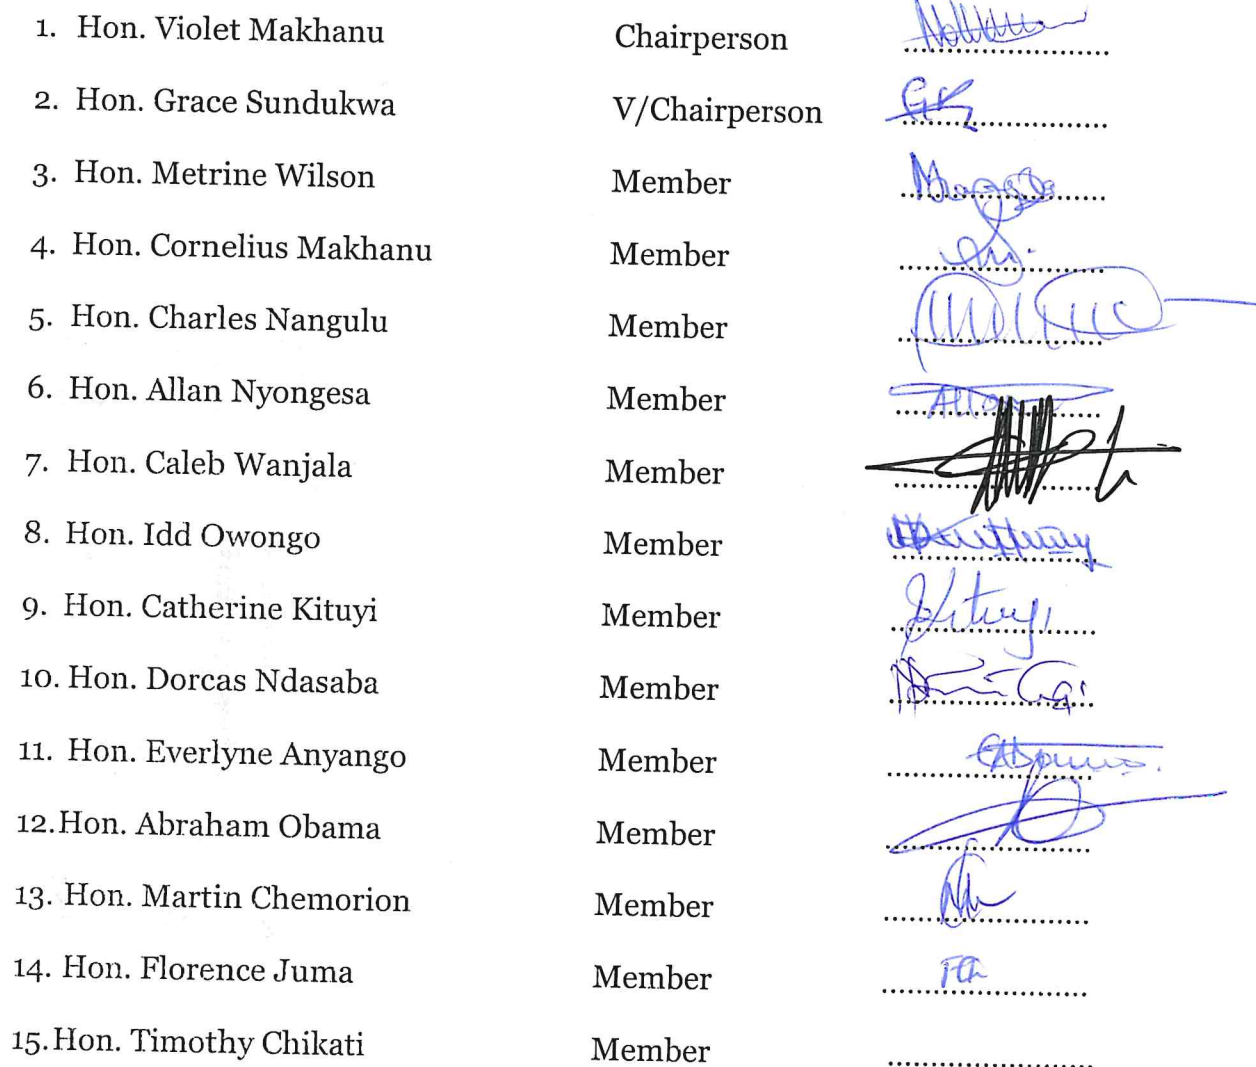 1. Hon. Violet Makhanu Chairperson
2. Hon. Grace Sundukwa V/Chairperson
3. Hon. Metrine Wilson Member
4. Hon. Cornelius Makhanu Member
5. Hon. Charles Nangulu Member
6. Hon. Allan Nyongesa Member
7. Hon. Caleb Wanjala Member
8. Hon. Idd Owongo Member
9. Hon. Catherine Kituyi Member
10. Hon. Dorcas Ndasaba Member
11. Hon. Everlyne Anyango Member
12.Hon. Abraham Obama Member
13. Hon. Martin Chemorion Member
14. Hon. Florence Juma Member
15.Hon. Timothy Chikati Member